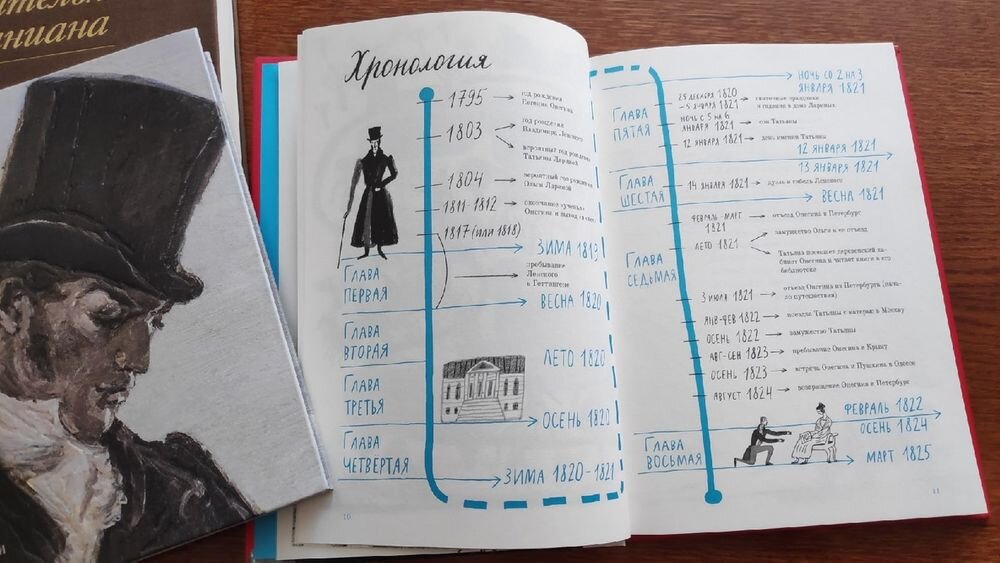 ниана
Хронология
1795
год рождения
Евгения Онегина
1803
год рождения
Владимира Ленского
вероятный год рождения
Татьяны Лариной
1804
вероятный год рождения
Ольги Лариной
1811-1812
окончание «ученья»
Онегина и выход в свет
1817 (или 1818)
ЗИМА 1819
ГЛАВА
ПЕРВАЯ
пребывание
Ленского
в Геттингене
ВЕСНА 1820
ГЛАВА
ВТОРАЯ
ЛЕТО 1820
ГЛАВА
ТРЕТЬЯ
ОСЕНЬ 1820
ГЛАВА
ЧЕТВЕРТАЯ
ЗИМА 1820-1821
10
НОЧЬ СО 2 НА 3
ЯНВАРЯ 1821
ГЛАВА
ПЯТАЯ
25 ДЕКАБРЯ 1820
- 5 ЯНВАРЯ 1821
святочные праздники
и гадания в доме Лариных
НОЧЬ С 5 НА 6
ЯНВАРЯ 1821
сон Татьяны
12 ЯНВАРЯ 1821
день именин Татьяны
12 ЯНВАРЯ 1821
13 ЯНВАРЯ 1821
ГЛАВА
ШЕСТАЯ
14 ЯНВАРЯ 1821
дуэль и гибель Ленского
ВЕСНА 1821
ГЛАВА
СЕДЬМАЯ
ФЕВРАЛЬ-МАРТ
1821
отъезд Онегина в Петербург
ЛЕТО 1821
замужество Ольги и ее отъезд
Татьяна посещает деревенский ка-
бинет Онегина и читает книги в его
библиотеке
3 ИЮЛЯ 1821
отъезд Онегина из Петербурга (нача-
ло путешествия)
ЯНВ-ФЕВ 1822
поездка Татьяны с матерью в Москву
ОСЕНЬ 1822
замужество Татьяны
АВГ-СЕН 1823
пребывание Онегина в Крыму
ОСЕНЬ 1823
встреча Онегина и Пушкина в Одессе
АВГУСТ 1824
возвращение Онегина в Петербург
ФЕВРАЛЬ 1822
ОСЕНЬ 1824
ГЛАВА
ВОСЬМАЯ
МАРТ 1825
11